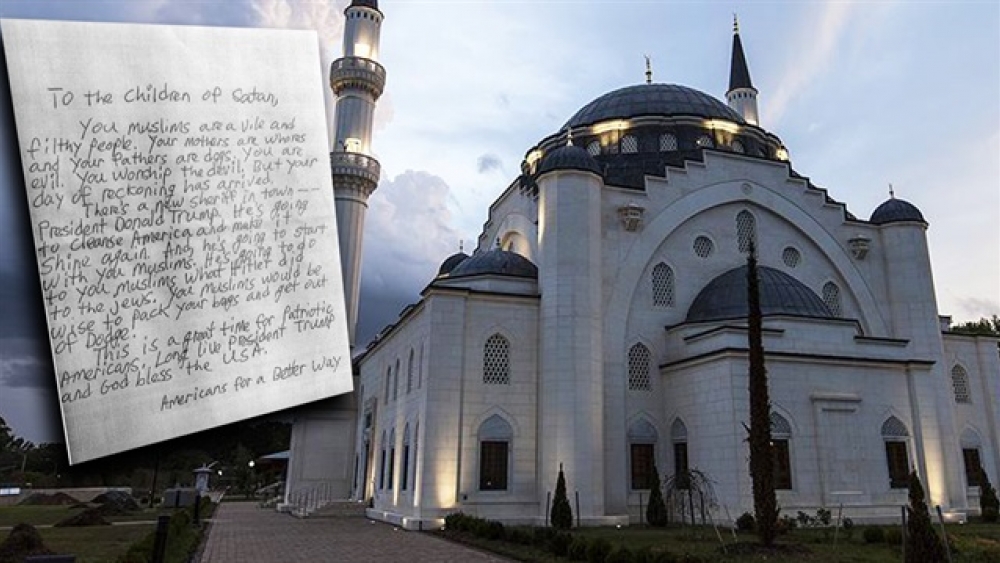 To the Children of Satan,
You muslims are a vile and
filthy people. Your mothers are whores
and your fathers are dogs. You are
evil. You worship the devil. But your
day of reckoning has arrived.
There's a new sheriff in town --
President Donald Trump. He's going
to cleanse America and make it
shine again. And, he's going to start
with you muslims. He's going to do
to you muslims what Hitler did
to the Jews. You muslims would be
wise to pack your bags and get out
of Dodge.
This is a great time for patriotic
Americans. Long live President Trump
and God bless the U.S.A.
Americans for a Better Way